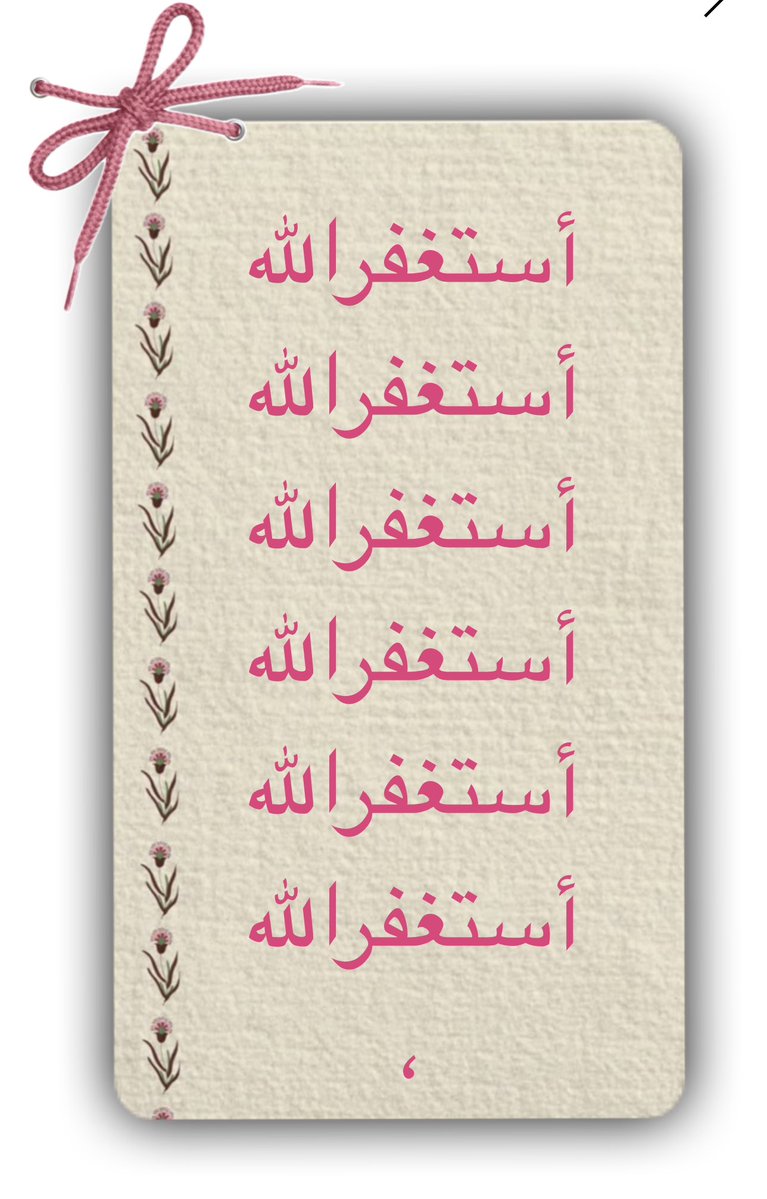 أستغفرالله
أستغفرالله
أستغفرالله
أستغفرالله
أستغفرالله
أستغفرالله
،